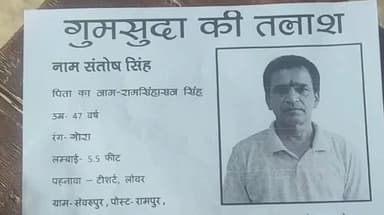 गुमसुदा की तलाश
नाम संतोष सिंह
पिता का नाम-रामसिंहासन सिंह
उम- 47 वर्ष
रंग- गोरा
लम्बाई- 5.5 फीट
पहनावा – टीशर्ट, लोवर
ग्राम-सेवरपुर, पोस्ट-रामपुर,